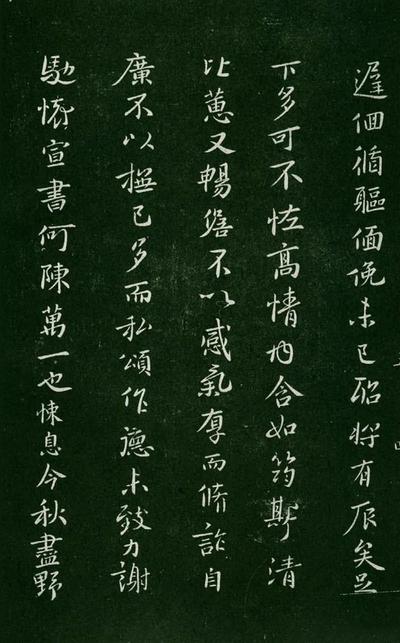 遲佪循軀偭俛未已將有辰矣足
下多可不怪高情內含如筠斯清
比蕙又暢不以感氣厚而脩自
廣不以已多而私頌作未致力謝
馳懷宣書何陳萬一也悚息今秋盡野